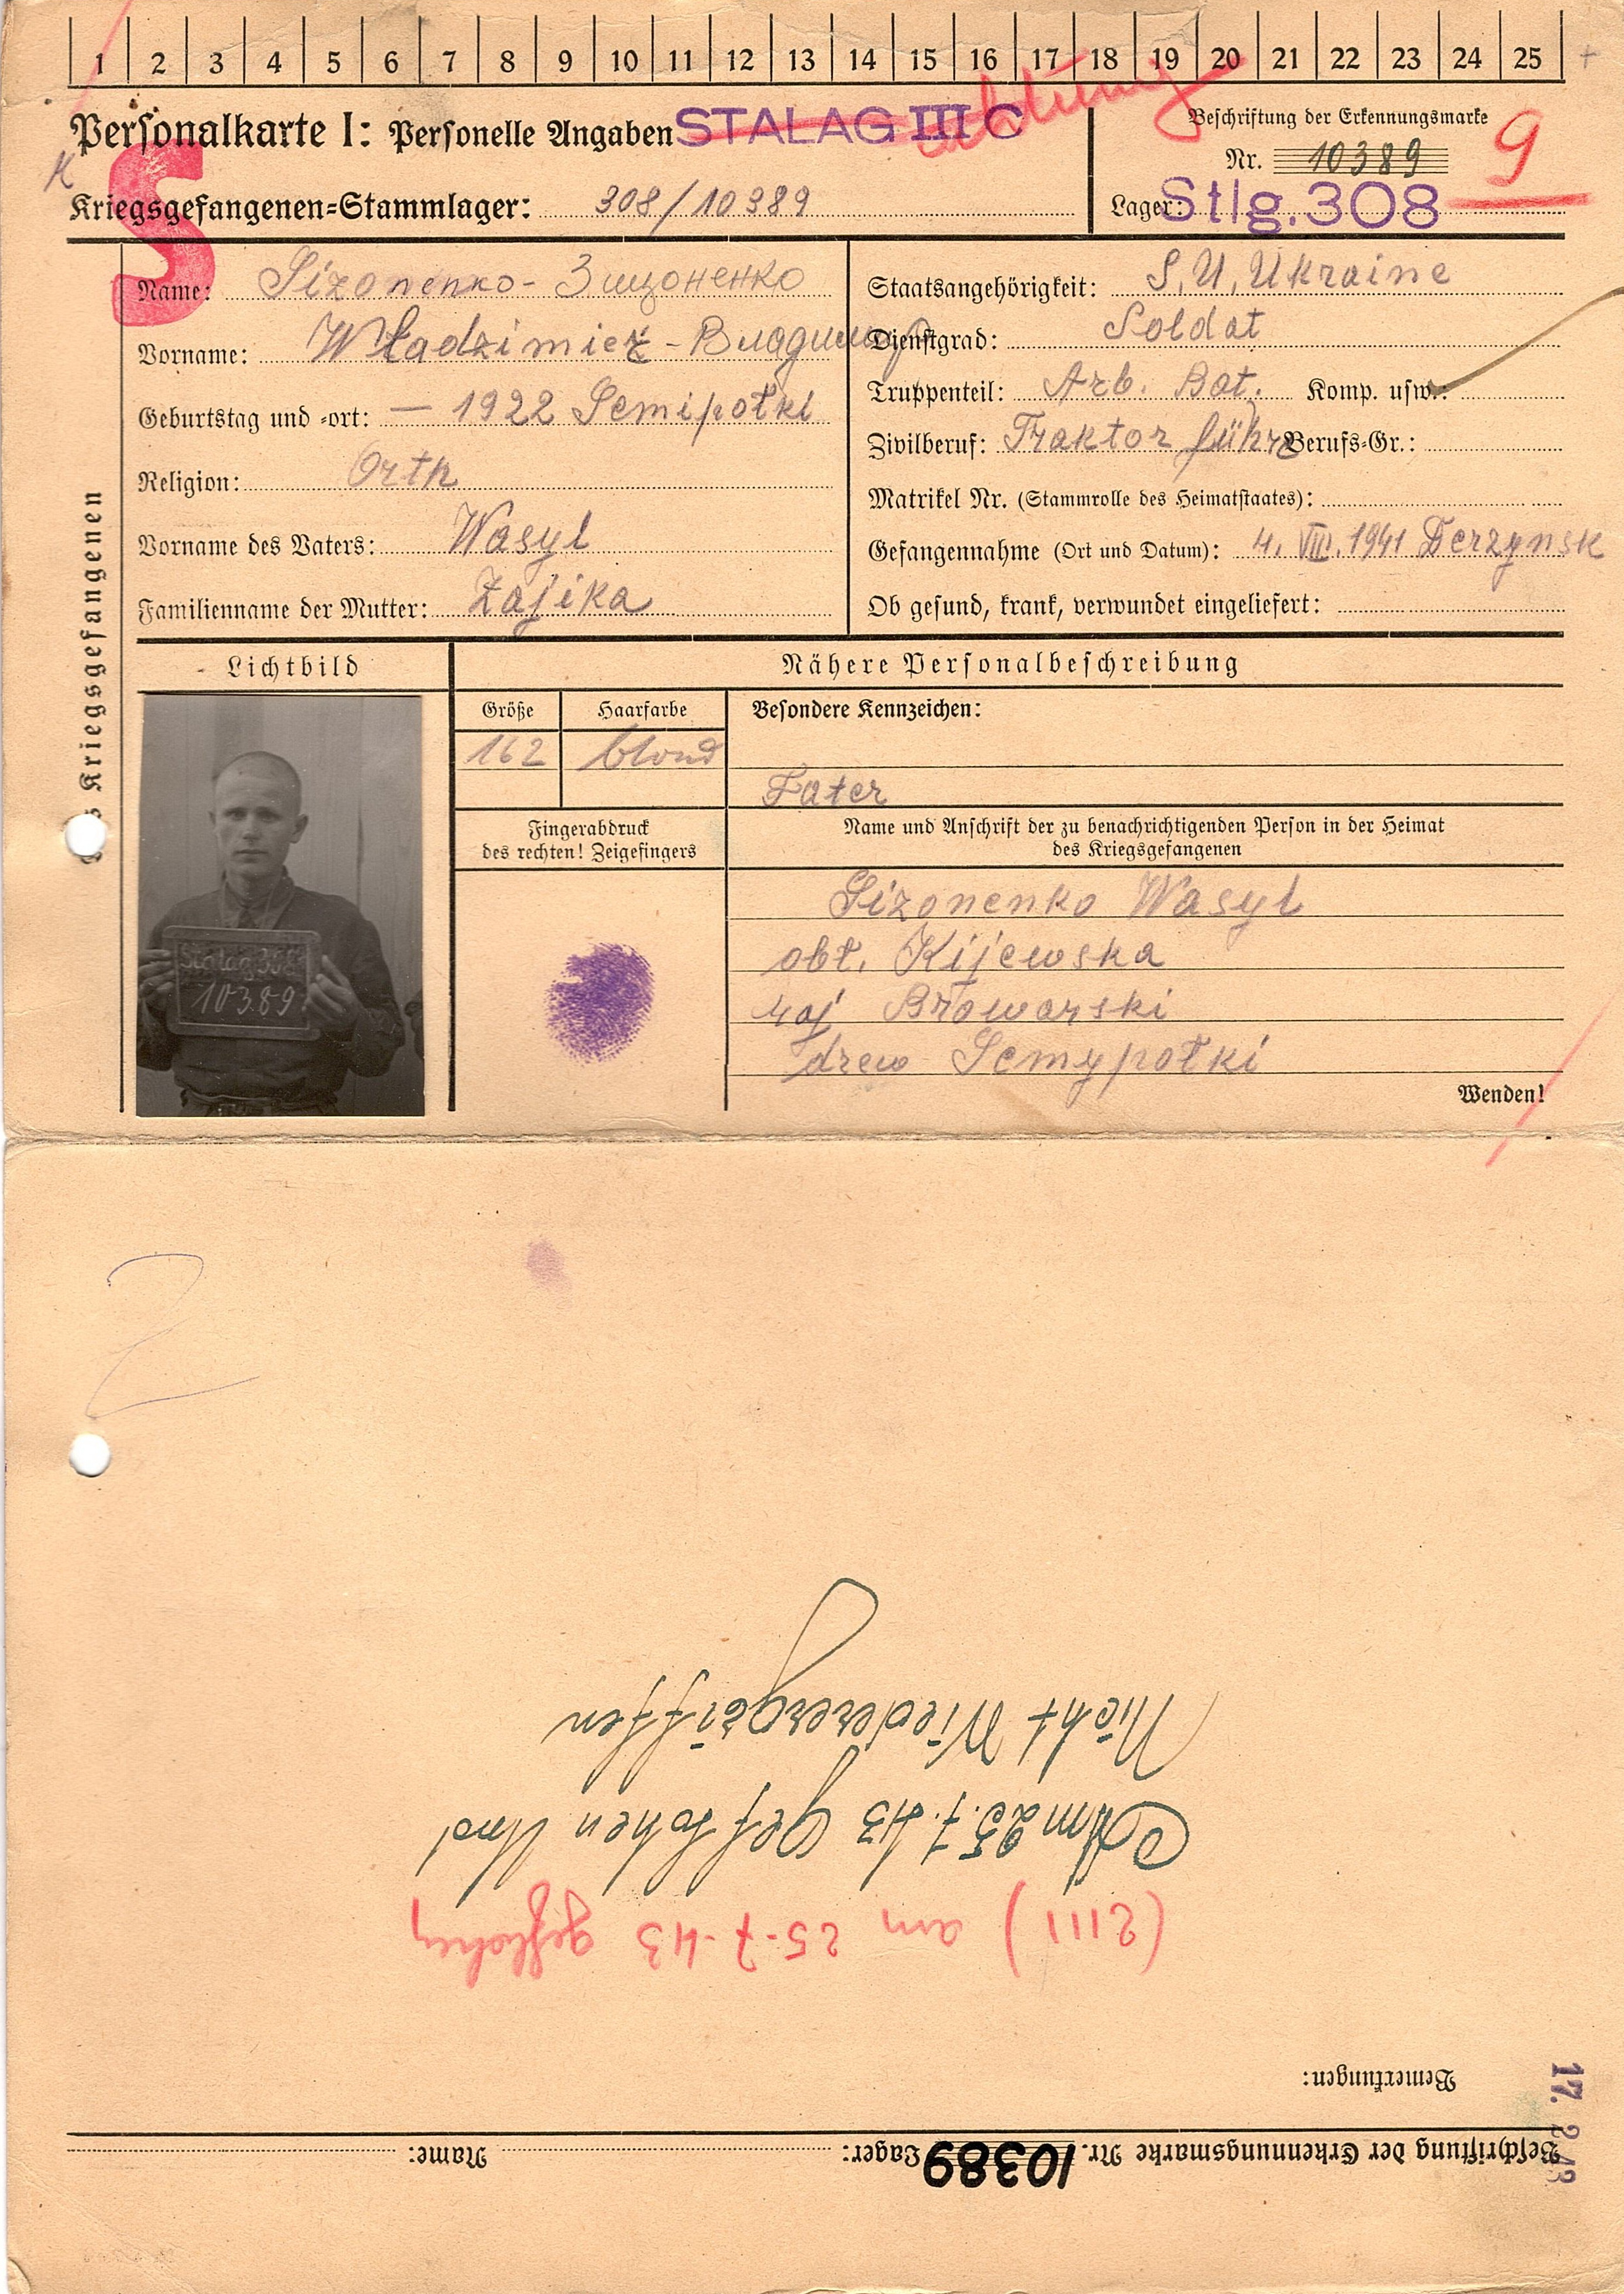 1 2 3 4 5 6 7 8 9 10 11 12 13 14 15 16 17 18 19 20 21 22 23 24 25
Personalkarte I: Personelle Angaben
STALAG III C
Beschriftung der Erkennungsmarke
Nr. 10389
9
K
S
Kriegsgefangenen-Stammlager: 308/10389
Lager: Stlg. 308
Des Kriegsgefangenen
Name: Sizonenko - Зицоненко
Vorname: Władzimierz - Владимир
Geburtstag und -ort: — 1922 Semipołki
Religion: Orth
Vorname des Vaters: Wasyl
Familienname der Mutter: Zajika
Staatsangehörigkeit: S.U. Ukraine
Dienstgrad: Soldat
Truppenteil: Arb. Bat. Komp. usw.:
Zivilberuf: Traktor führ Berufs-Gr.:
Matrikel Nr. (Stammrolle des Heimatstaates):
Gefangennahme (Ort und Datum): 4. VIII. 1941 Derzynsk
Ob gesund, krank, verwundet eingeliefert:
Lichtbild
Nähere Personalbeschreibung
Größe
Haarfarbe
Besondere Kennzeichen:
162
blond
Fater
Fingerabdruck
des rechten! Zeigefingers
Name und Anschrift der zu benachrichtigenden Person in der Heimat
des Kriegsgefangenen
Stalag 308
10389
Sizonenko Wasyl
obł. Kijewska
raj Browarski
drew Semypołki
Wenden!
Beschriftung der Erkennungsmarke Nr. 10389 Lager: Name:
17. 2. 43
Bemerkungen:
(2111) am 25-7-43 geflohen
Am 25.7.43 geflohen Und
Nicht Wiederergriffen